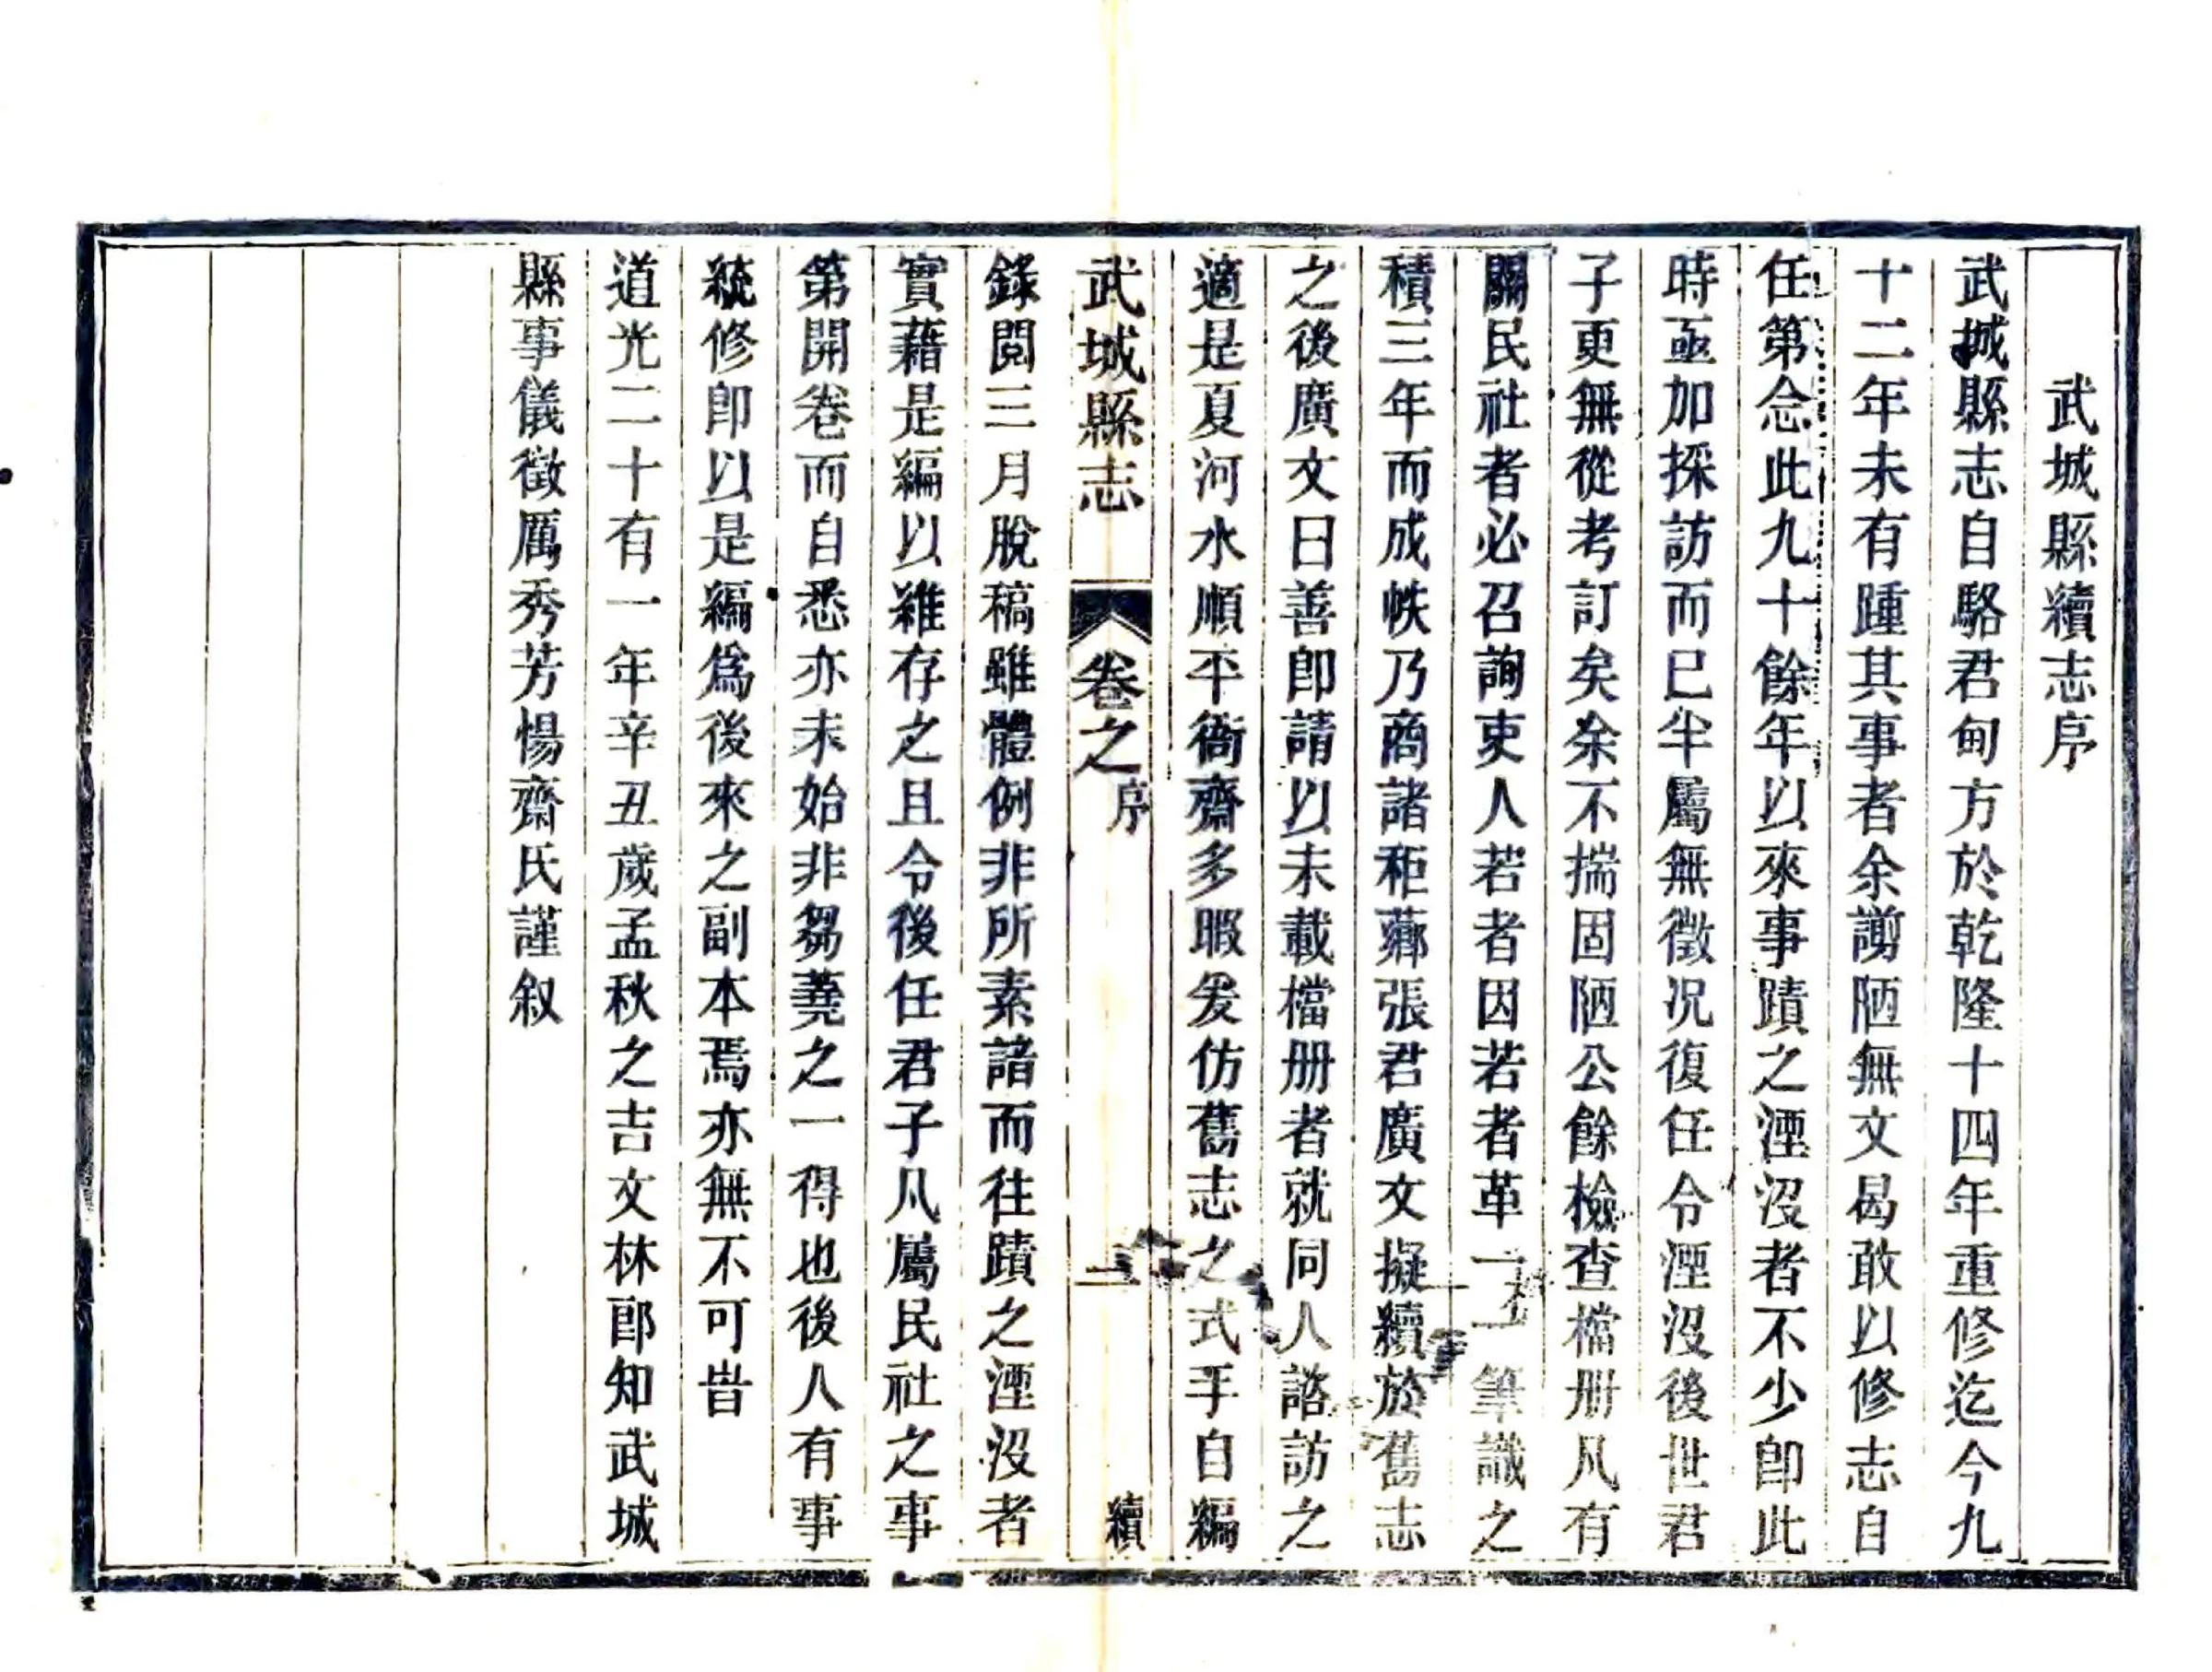 武城縣續志序
武城縣志自駱君甸方於乾隆十四年重修迄今九
十二年未有踵其事者余謭陋無文曷敢以修志自
任第念此九十餘年以來事蹟之湮沒者不少卽此
時亟加採訪而已半屬無徵况復任令湮沒後世君
子更無從考訂矣余不揣固陋公餘檢查檔册凡有
關民社者必召詢吏人若者因若者革一一筆識之
積三年而成帙乃商諸秬薌張君廣文擬續於舊志
之後廣文曰善卽請以未載檔册者就同人諮訪之
適是夏河水順平衙齋多暇爰仿舊志之式手自編
武城縣志 卷之 序 二 續
錄閱三月脫稿雖體例非所素諳而往蹟之湮沒者
實藉是編以維存之且令後任君子凡屬民社之事
第開卷而自悉亦未始非芻蕘之一得也後人有事
統修卽以是編爲後來之副本焉亦無不可旹
道光二十有一年辛丑歲孟秋之吉文林郎知武城
縣事儀徵厲秀芳惕齋氏謹叙